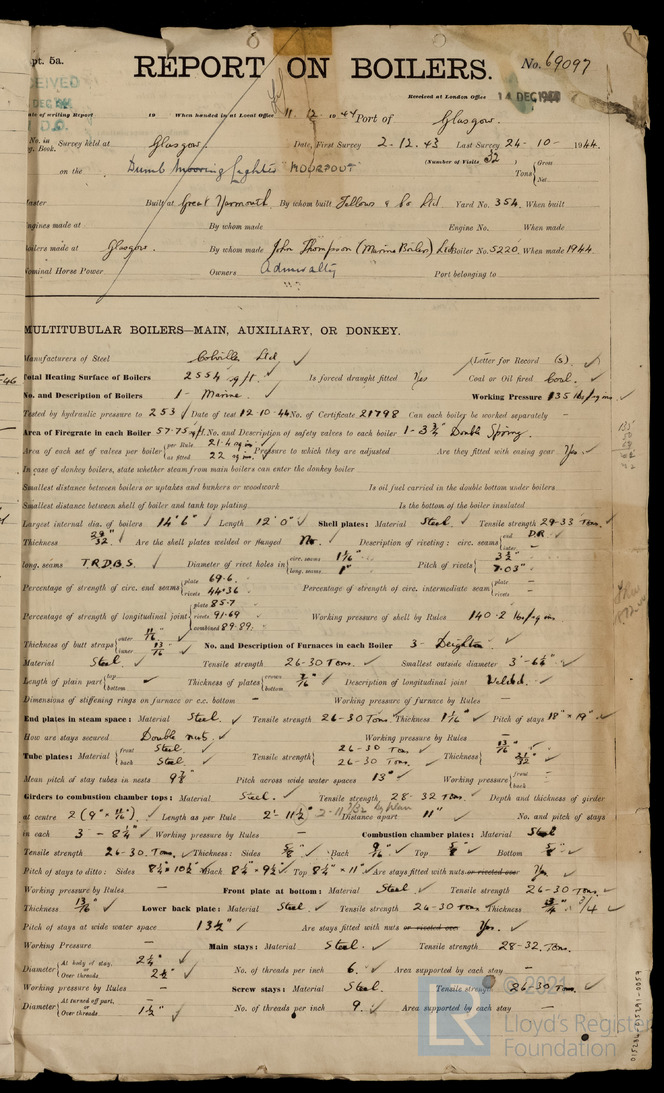 pt. 5a.
REPORT ON BOILERS.
No. 69097
Received at London Office 14 DEC 1944
ate of writing Report 19 When handed in at Local Office 11. 12. 19 44 Port of Glasgow.
No. in Survey held at Glasgow. Date, First Survey 2-12.43 Last Survey 24-10-1944.
g. Book.
(Number of Visits 32 )
on the Dumb Mooring Lighter "MOORPOUT" Tons { Gross Net
aster Built at Great Yarmouth By whom built Fellows & Co Ltd Yard No. 354. When built
ngines made at By whom made Engine No. When made
oilers made at Glasgow. By whom made John Thompson (Marine Boilers) Ltd Boiler No. 5220. When made 1944
ominal Horse Power Owners Admiralty Port belonging to
MULTITUBULAR BOILERS—MAIN, AUXILIARY, OR DONKEY.
Manufacturers of Steel Colvilles Ltd ✓ (Letter for Record (S). ✓
Total Heating Surface of Boilers 2554 sq ft. ✓ Is forced draught fitted Yes Coal or Oil fired Coal. ✓
No. and Description of Boilers 1- Marine. Working Pressure 135 lbs/sq ins
Tested by hydraulic pressure to 253 ✓ Date of test 12-10-44 No. of Certificate 21798 Can each boiler be worked separately —
Area of Firegrate in each Boiler 57.75 sq ft. No. and Description of safety valves to each boiler 1-3¾" Double Spring.
Area of each set of valves per boiler { per Rule 21.4 sq in. as fitted 22 sq in. Pressure to which they are adjusted Are they fitted with easing gear Yes ✓
In case of donkey boilers, state whether steam from main boilers can enter the donkey boiler
Smallest distance between boilers or uptakes and bunkers or woodwork Is oil fuel carried in the double bottom under boilers
Smallest distance between shell of boiler and tank top plating Is the bottom of the boiler insulated
Largest internal dia. of boilers 14' 6" ✓ Length 12' 0" ✓ Shell plates: Material Steel. ✓ Tensile strength 29-33 Tons.
Thickness 29/32 Are the shell plates welded or flanged No. ✓ Description of riveting: circ. seams { end D.R. inter. —
long. seams T.R.D.B.S. Diameter of rivet holes in { circ. seams 1 1/16" long. seams 1" Pitch of rivets { 3½" 7.03"
Percentage of strength of circ. end seams { plate 69.6. rivets 44.36 Percentage of strength of circ. intermediate seam { plate — rivets —
Percentage of strength of longitudinal joint { plate 85.7 rivets 91.69 combined 89.89. Working pressure of shell by Rules 140.2 lbs/sq ins
Thickness of butt straps { outer 11/16 inner 13/16 No. and Description of Furnaces in each Boiler 3- Deighton ✓
Material Steel. ✓ Tensile strength 26-30 Tons. ✓ Smallest outside diameter
Length of plain part { top bottom Thickness of plates { crown bottom Description of longitudinal joint Welded. ✓
Dimensions of stiffening rings on furnace or c.c. bottom — Working pressure of furnace by Rules —
End plates in steam space: Material Steel. ✓ Tensile strength 26-30 Tons. Thickness 1 1/16" ✓ Pitch of stays 18" × 19" ✓
How are stays secured Double nuts. ✓ Working pressure by Rules —
Tube plates: Material { front Steel. back Steel. Tensile strength { 26-30 Tons 26-30 Tons. Thickness { 13/16 21/32
Mean pitch of stay tubes in nests Pitch across wide water spaces 13" ✓ Working pressure { front — back —
Girders to combustion chamber tops: Material Steel. ✓ Tensile strength 28-32 Tons. Depth and thickness of girder
at centre 2 (9" × 11/16"). ✓ Length as per Rule 2'-11½" Distance apart 11" ✓ No. and pitch of stays
in each 3 - 8¼" ✓ Working pressure by Rules — Combustion chamber plates: Material Steel
Tensile strength 26-30 Tons. ✓ Thickness: Sides 5/8" ✓ Back 9/16" ✓ Top 5/8" ✓ Bottom 5/8" ✓
Pitch of stays to ditto: Sides 8¼" × 10½" ✓ Back 8¼" × 9½" ✓ Top 8¼" × 11" ✓ Are stays fitted with nuts or riveted over Yes ✓
Working pressure by Rules — Front plate at bottom: Material Steel. ✓ Tensile strength 26-30 Tons. ✓
Thickness 13/16" ✓ Lower back plate: Material Steel ✓ Tensile strength 26-30 Tons ✓ Thickness 3/4
Pitch of stays at wide water space 13½" ✓ Are stays fitted with nuts or riveted over Yes. ✓
Working Pressure — Main stays: Material Steel. ✓ Tensile strength 28-32. Tons.
Diameter { At body of stay, 2¼" or Over threads. 2½" ✓ No. of threads per inch 6. ✓ Area supported by each stay —
Working pressure by Rules — Screw stays: Material Steel. Tensile strength 26-30 Tons. ✓
Diameter { At turned off part, — or Over threads. 1½" ✓ No. of threads per inch 9. ✓ Area supported by each stay —
© 2021
Lloyd's Register
Foundation